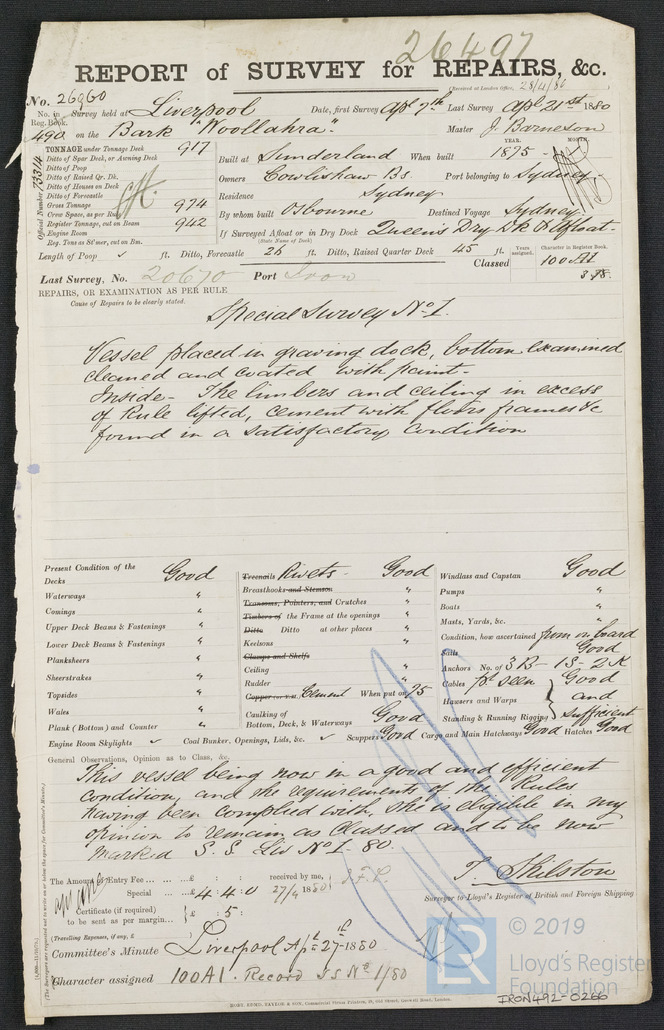 26497
REPORT of SURVEY for REPAIRS, &c.
(Received at London Office, 28/4/80
No. 26960
No. in Reg. Book. Survey held at Liverpool Date, first Survey Apl 7th Last Survey Apl 21st 1880
490 on the Bark "Woollahra" Master J. Barneson
TONNAGE under Tonnage Deck 917
Ditto of Spar Deck, or Awning Deck
Ditto of Poop
Ditto of Raised Qr. Dk.
Ditto of Houses on Deck
Ditto of Forecastle
Gross Tonnage 974
Crew Space, as per Rule
Register Tonnage, cut on Beam 942
Engine Room
Reg. Tons as St'mer, cut on Bm.
Official Number 73314
YEAR. MONTH.
Built at Sunderland When built 1875
Owners Cowlishaw Bs. Port belonging to Sydney
Residence Sydney
By whom built Osbourne Destined Voyage Sydney
If Surveyed Afloat or in Dry Dock Queen's Dry Dk & Afloat.
(State Name of Dock)
Length of Poop ✓ ft. Ditto, Forecastle 26 ft. Ditto, Raised Quarter Deck 45 ft.
Years assigned. Character in Register Book.
Classed 100 A1
3.78.
Last Survey, No. 20670 Port Iron
REPAIRS, OR EXAMINATION AS PER RULE
Cause of Repairs to be clearly stated.
Special Survey No. I.
Vessel placed in graving dock, bottom examined
cleaned and coated with paint.
Inside - The limbers and ceiling in excess
of Rule lifted, cement with floors frames &c
found in a satisfactory condition
Present Condition of the
Decks Good
Waterways "
Comings "
Upper Deck Beams & Fastenings "
Lower Deck Beams & Fastenings "
Planksheers "
Sheerstrakes "
Topsides "
Wales "
Plank (Bottom) and Counter "
Treenails Rivets - Good
Breasthooks and Stemson "
Transoms, Pointers, and Crutches "
Timbers of the Frame at the openings "
Ditto Ditto at other places "
Keelsons "
Clamps and Shelfs
Ceiling "
Rudder "
Copper or Y.M. Cement When put on 75
Caulking of Bottom, Deck, & Waterways Good
Windlass and Capstan Good
Pumps "
Boats "
Masts, Yards, &c. "
Condition, how ascertained from on board
Sails Good
Anchors No. of 3 B - 1 S - 2 K
Cables pt seen Good
Hawsers and Warps and
Standing & Running Rigging sufficient
Engine Room Skylights ✓ Coal Bunker, Openings, Lids, &c. ✓ Scuppers Good Cargo and Main Hatchways Good Hatches Good
General Observations, Opinion as to Class, &c.
This vessel being now in a good and efficient
condition, and the requirements of the Rules
having been complied with, she is eligible in my
opinion to remain as Classed and to be now
marked S. S. Liv No I 80.
The Amount of Entry Fee ... £ : : received by me,
Special ... £ 4 : 4 : 0 27/4 1880
Certificate (if required) £ : 5 :
to be sent as per margin...
(Travelling Expenses, if any, £ )
T. Skilston
Surveyor to Lloyd's Register of British and Foreign Shipping
Committee's Minute Liverpool Apl 27th 1880
Character assigned 100A1. Record S S No 1/80
© 2019
Lloyd's Register
Foundation
IRON492-0266